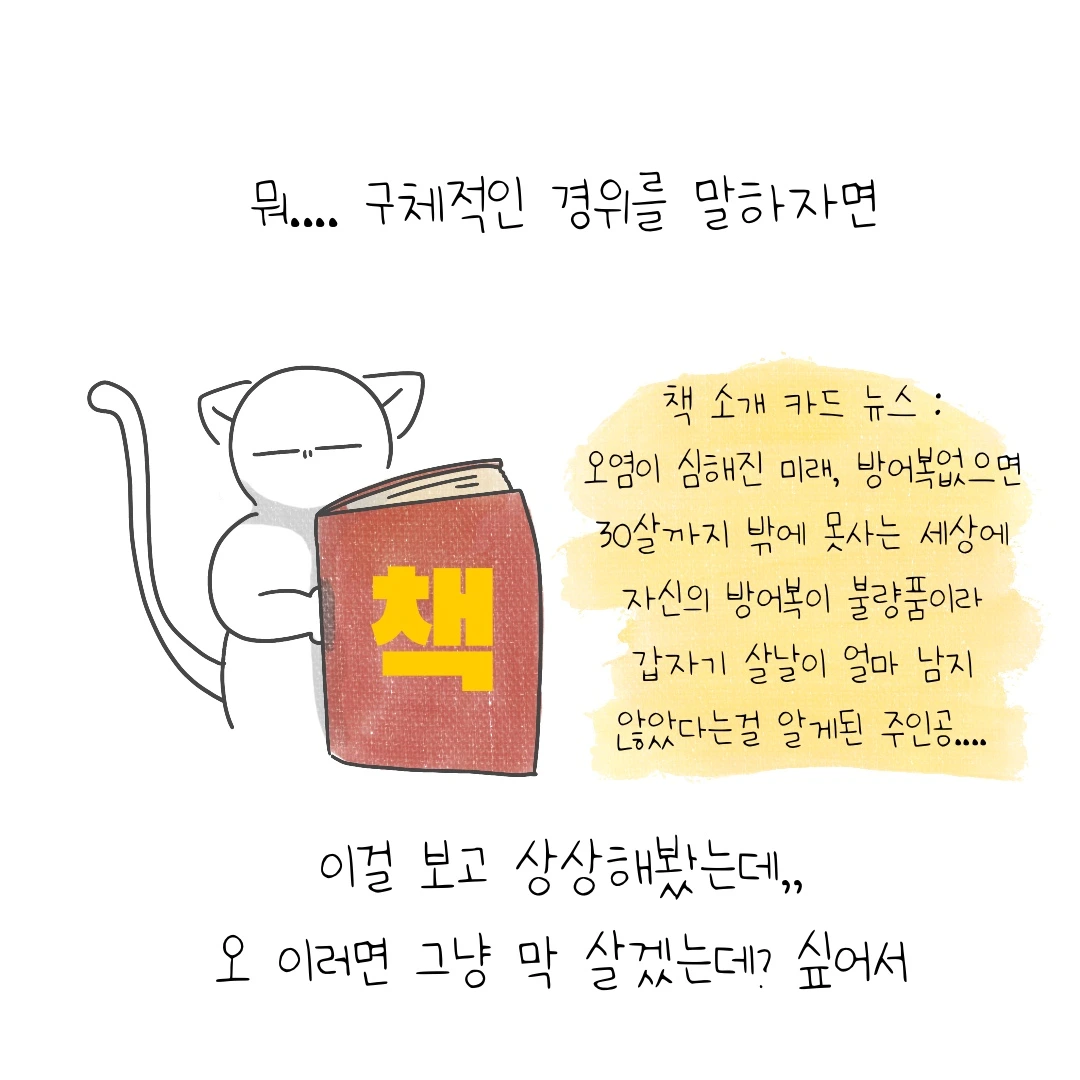 뭐.... 구체적인 경위를 말하자면
책
책 소개 카드 뉴스 :
오염이 심해진 미래, 방어복없으면
30살까지 밖에 못사는 세상에
자신의 방어복이 불량품이라
갑자기 살날이 얼마 남지
않았다는걸 알게된 주인공....
이걸 보고 상상해봤는데,,
오 이러면 그냥 막 살겠는데? 싶어서